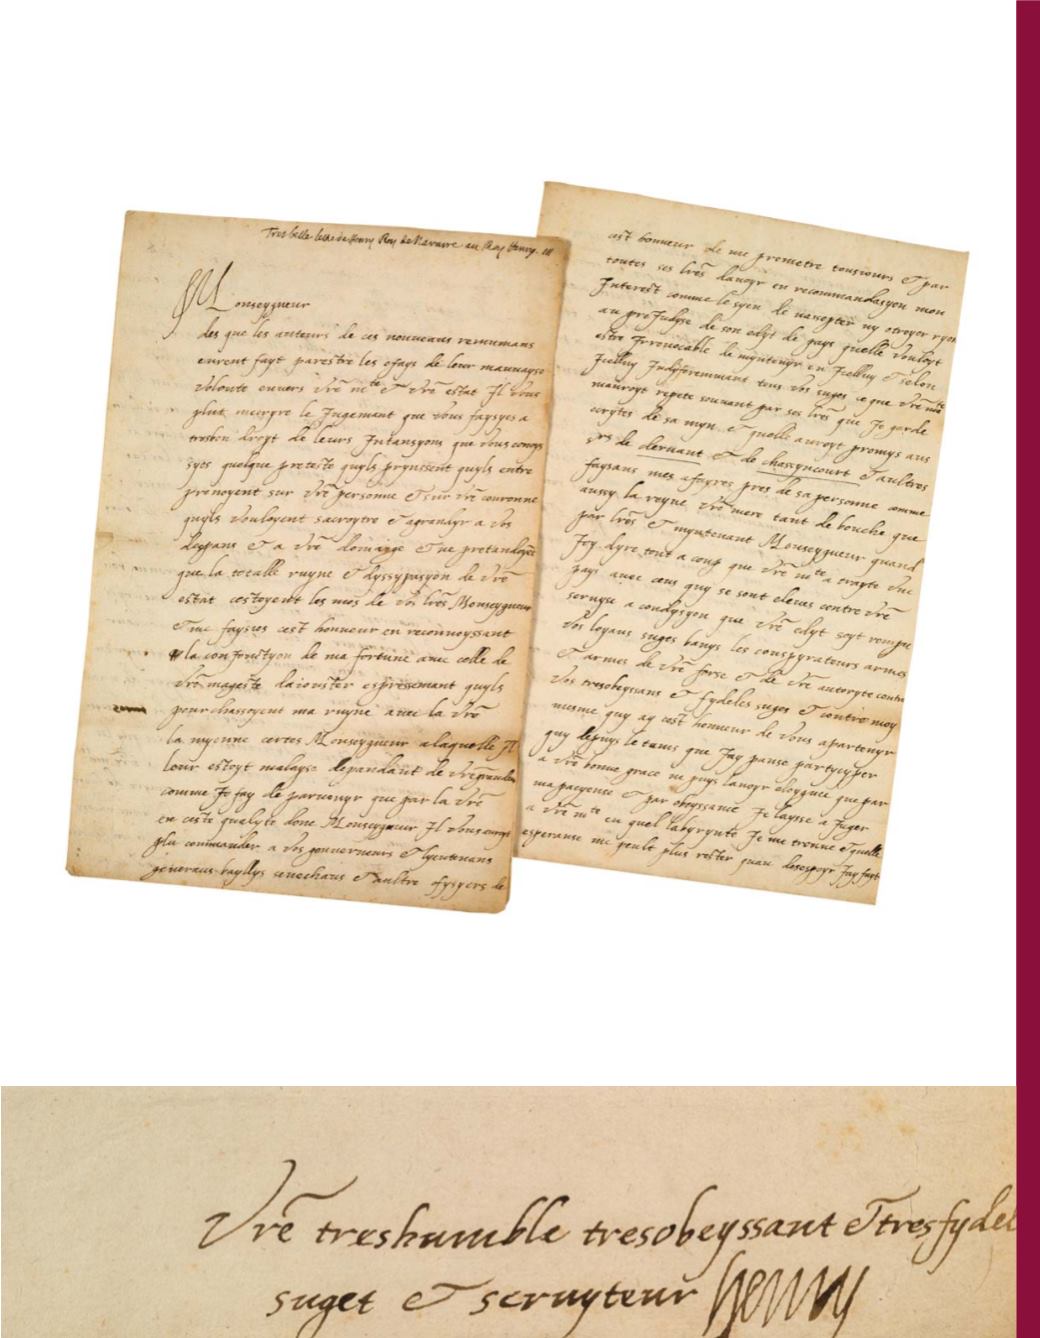 Tres belle lettre de Henry Roy de Navarre au Roy Henry III
Monseygneur
des que les auteurs de ces nouveaus remumans
eurent fayt parestre les efays de leur mauuayse
volonte enuers vrẽ mte et vrẽ estat Il vous
plut fere le Jugemant que vous faysyes a
tresbon droyt de leurs Intansyons que vous connoys
syes quelque preteste quyls prynssent quyls entre
prenoyent sur vrẽ personne et sur vrẽ couronne
quyls vouloyent sacroytre et agrandyr a vos
despans et a vrẽ domaige et ne pretandoyẽt
que la totalle ruyne et dyssypasyon de vrẽ
estat cestoyent les mos de vos lrẽs Monseygneur
et me faysies cest honneur en reconnoyssant
la conjonctyon de ma fortune auec celle de
vrẽ mageste daiouster espressemant quyls
pourchassoyent ma ruyne auec la vrẽ
la myenne certes Monseygneur a laquelle Il
leur estoyt malayse dependant de vrẽ grandeur
comme Je fay de paruenyr que par la vrẽ
en ceste qualyte donc Monseygneur Il vous auroyt
plu commander a vos gouuerneurs et lyeutenans
generaus bayllys senechaus et aultre ofysyers de
cest honneur de me prometre tousiours et par
toutes ses lrẽs dauoyr en recommandasyon mon
Interest comme le syen de nassepter ny otroyer ryen
au preJudyse de son edyt de pays quelle vouloyt
estre Irreuocable de myntenyr en Jcelluy et selon
Jcelluy Indyferemmant tous vos suges ce que vrẽ mte
mauroyt repete souuant par ses lrẽs que Je garde
escrytes de sa myn et quelle auroyt promys aus
srs de cleruant et de chassyncourt et aultres
faysans mes afayres pres de sa personne comme
aussy la reyne vrẽ mere tant de bouche que
par lrẽs et myntenant Monseygneur quand
Joy dyre tout a coup que vrẽ mte a trayte vne
pays auec ceus quy se sont eleues contre vrẽ
seruyse a condysyon que vrẽ edyt soyt rompu
vos loyaus suges banys les conspyrateurs armes
et armes de vrẽ forse et de vrẽ autoryte contre
vos tresobeyssans et fydeles suges et contre moy
mesme quy ay cest honneur de vous apartenyr
quy depuys le tams que Jay panse partycyper
a vrẽ bonne grace ne puys lauoyr eloygnee que par
ma pacyense et par obeyssance Je laysse a Juger
a vrẽ mte en quel labyrynte Je me trouue et quelle
esperanse me peult plus rester quau desespoyr Jay fayt
Vrẽ treshumble tresobeyssant et tresfydel
suget et seruyteur Henry